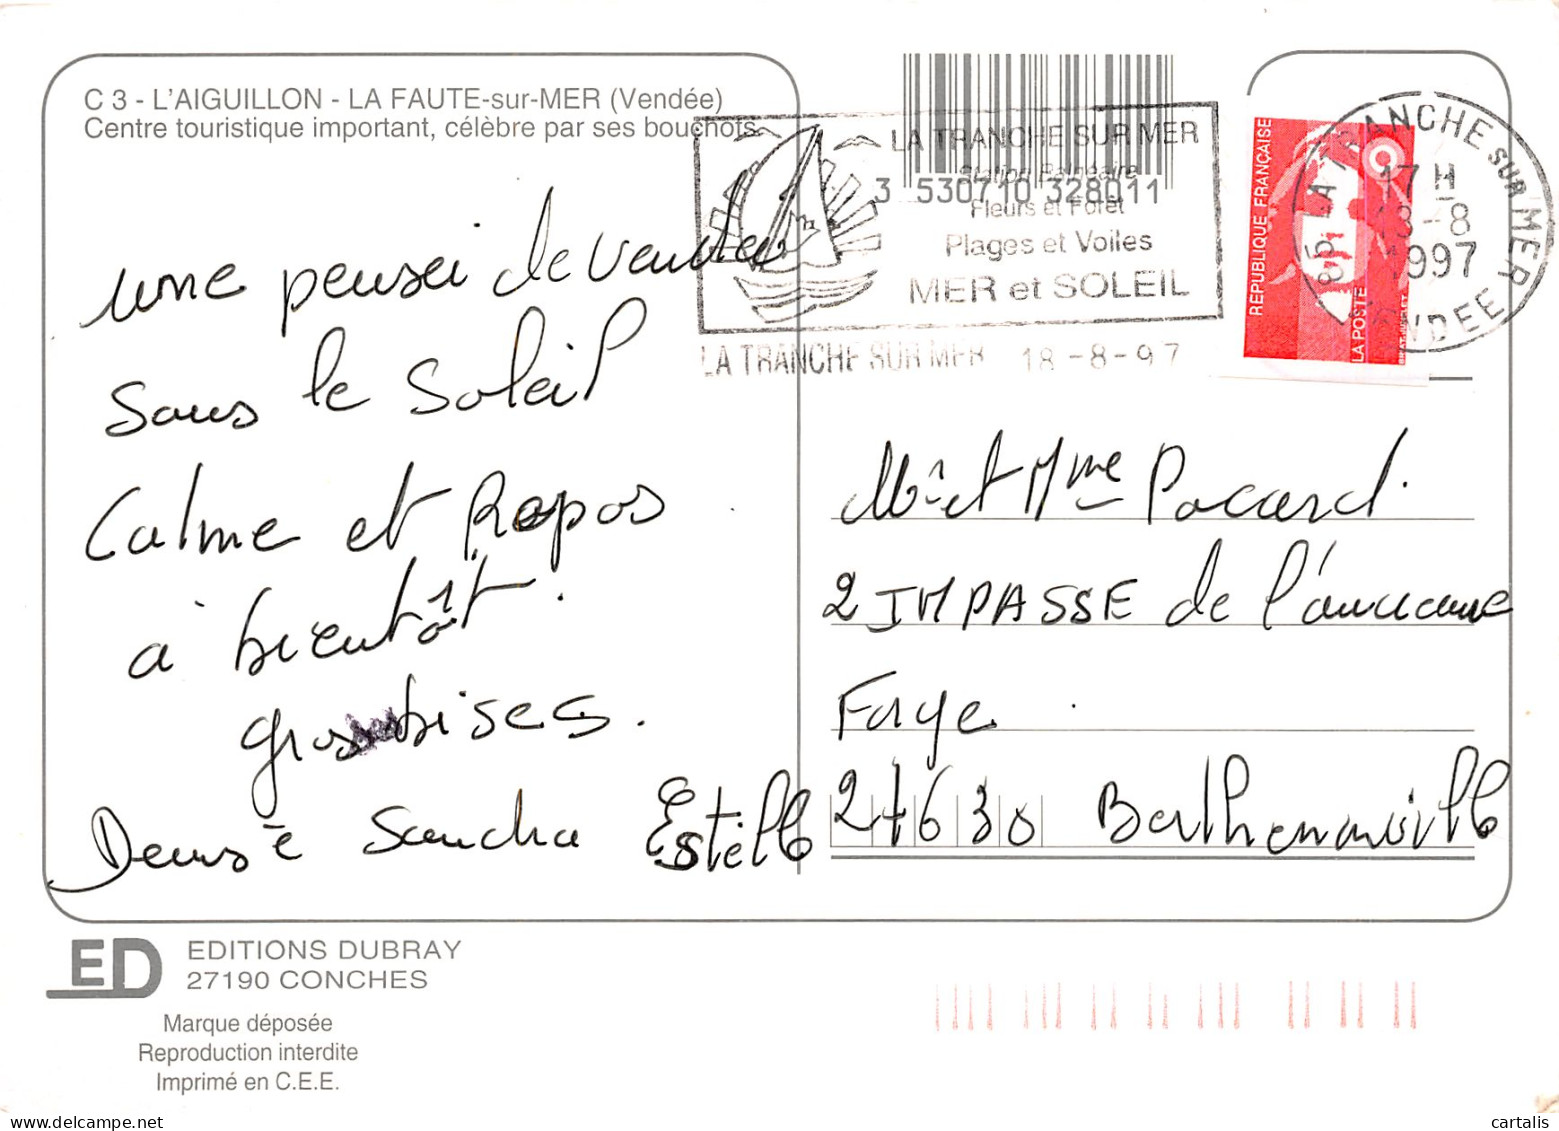 C 3 - L'AIGUILLON - LA FAUTE-sur-MER (Vendée)
Centre touristique important, célèbre par ses bouchots
une pensei de vendée
sous le soleil
Calme et Repos
a bientôt.
gros bises.
Denise Sandra Estelle
3 530710 328011
LA TRANCHE SUR MER
Station Balnéaire
Fleurs et Forêt
Plages et Voiles
MER et SOLEIL
LA TRANCHE SUR MER 18-8-97
RÉPUBLIQUE FRANÇAISE
LA POSTE
85 LA TRANCHE SUR MER
17 H
18-8
1997
VENDEE
Mr et Mme Pacard.
2 IMPASSE de l'ancienne
Forge
27630 Berthenonville
ED
EDITIONS DUBRAY
27190 CONCHES
Marque déposée
Reproduction interdite
Imprimé en C.E.E.
cartalis